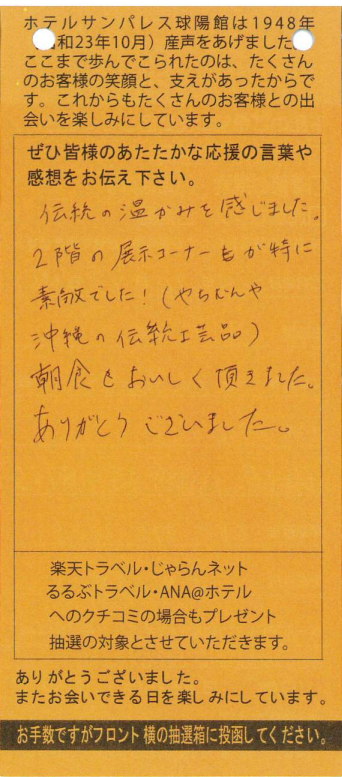 ホテルサンパレス球陽館は1948年
和23年10月）産声をあげました
ここまで歩んでこられたのは、たくさん
のお客様の笑顔と、支えがあったからで
す。これからもたくさんのお客様との出
会いを楽しみにしています。
ぜひ皆様のあたたかな応援の言葉や
感想をお伝え下さい。
伝統の温かみを感じました。
2階の展示コーナーが特に
素敵でした！（やちむんや
沖縄の伝統工芸品）
朝食もおいしく頂きました。
ありがとうございました。
楽天トラベル・じゃらんネット
るるぶトラベル・ANA@ホテル
へのクチコミの場合もプレゼント
抽選の対象とさせていただきます。
ありがとうございました。
またお会いできる日を楽しみにしています。
お手数ですがフロント横の抽選箱に投函してください。